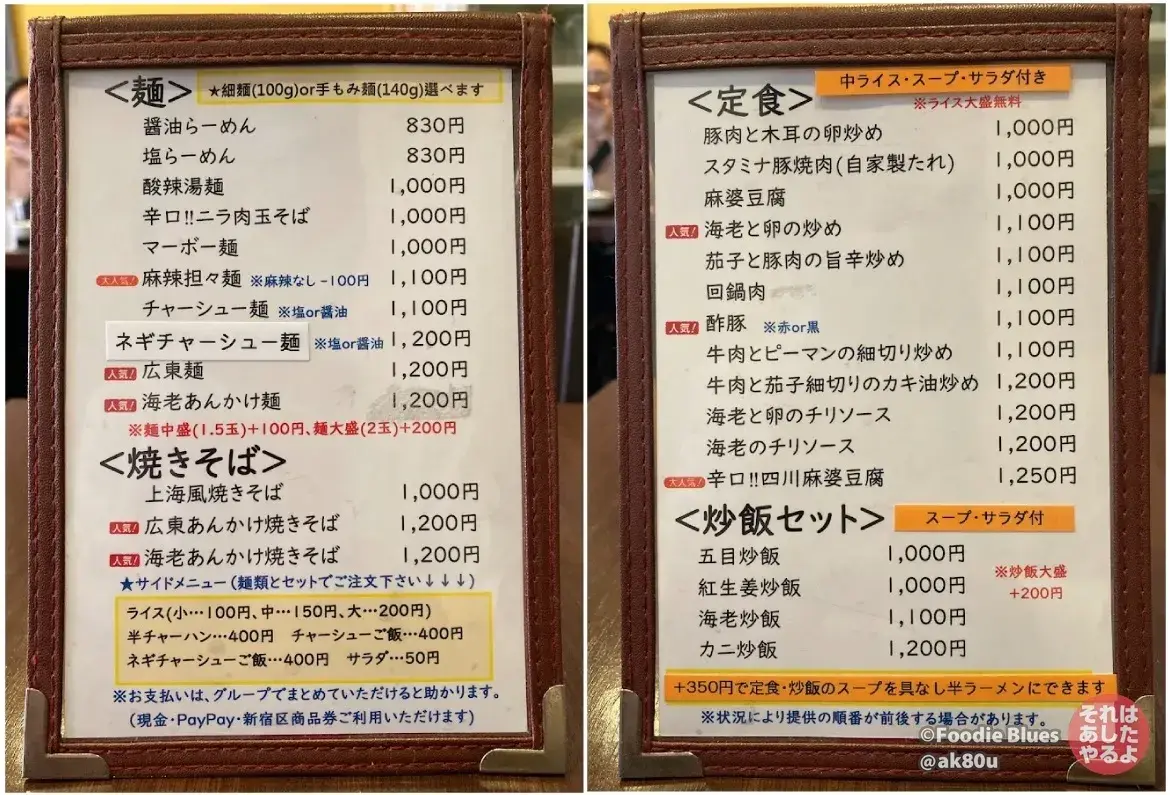 <麺>
★細麺(100g)or手もみ麺(140g)選べます
醤油らーめん 830円
塩らーめん 830円
酸辣湯麺 1,000円
辛口!!ニラ肉玉そば 1,000円
マーボー麺 1,000円
大人気! 麻辣担々麺 ※麻辣なし-100円 1,100円
チャーシュー麺 ※塩or醤油 1,100円
ネギチャーシュー麺 ※塩or醤油 1,200円
人気! 広東麺 1,200円
人気! 海老あんかけ麺 1,200円
※麺中盛(1.5玉)+100円、麺大盛(2玉)+200円
<焼きそば>
上海風焼きそば 1,000円
人気! 広東あんかけ焼きそば 1,200円
人気! 海老あんかけ焼きそば 1,200円
★サイドメニュー(麺類とセットでご注文下さい↓↓↓)
ライス(小…100円、中…150円、大…200円)
半チャーハン…400円 チャーシューご飯…400円
ネギチャーシューご飯…400円 サラダ…50円
※お支払いは、グループでまとめていただけると助かります。
(現金・PayPay・新宿区商品券ご利用いただけます)
<定食>
中ライス・スープ・サラダ付き
※ライス大盛無料
豚肉と木耳の卵炒め 1,000円
スタミナ豚焼肉(自家製たれ) 1,000円
麻婆豆腐 1,000円
人気! 海老と卵の炒め 1,100円
茄子と豚肉の旨辛炒め 1,100円
回鍋肉 1,100円
人気! 酢豚 ※赤or黒 1,100円
牛肉とピーマンの細切り炒め 1,100円
牛肉と茄子細切りのカキ油炒め 1,200円
海老と卵のチリソース 1,200円
海老のチリソース 1,200円
大人気! 辛口!!四川麻婆豆腐 1,250円
<炒飯セット>
スープ・サラダ付
五目炒飯 1,000円
紅生姜炒飯 1,000円
海老炒飯 1,100円
カニ炒飯 1,200円
※炒飯大盛
+200円
+350円で定食・炒飯のスープを具なし半ラーメンにできます
※状況により提供の順番が前後する場合があります。
©Foodie Blues
@ak80u
それは
あした
やるよ